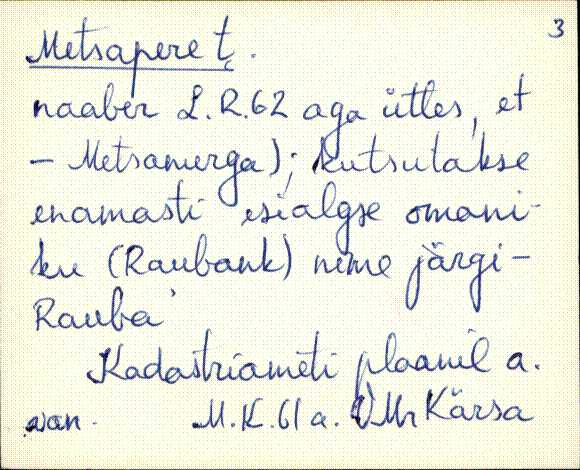 3
Metsapere t.
naaber L.R.62 aga ütles, et
– Metsanurga); kutsutakse
enamasti esialgse omani-
ku (Raubank) nime järgi –
Rauba'
Kadastriameti plaanil a.
M.K.61 a. Kärsa